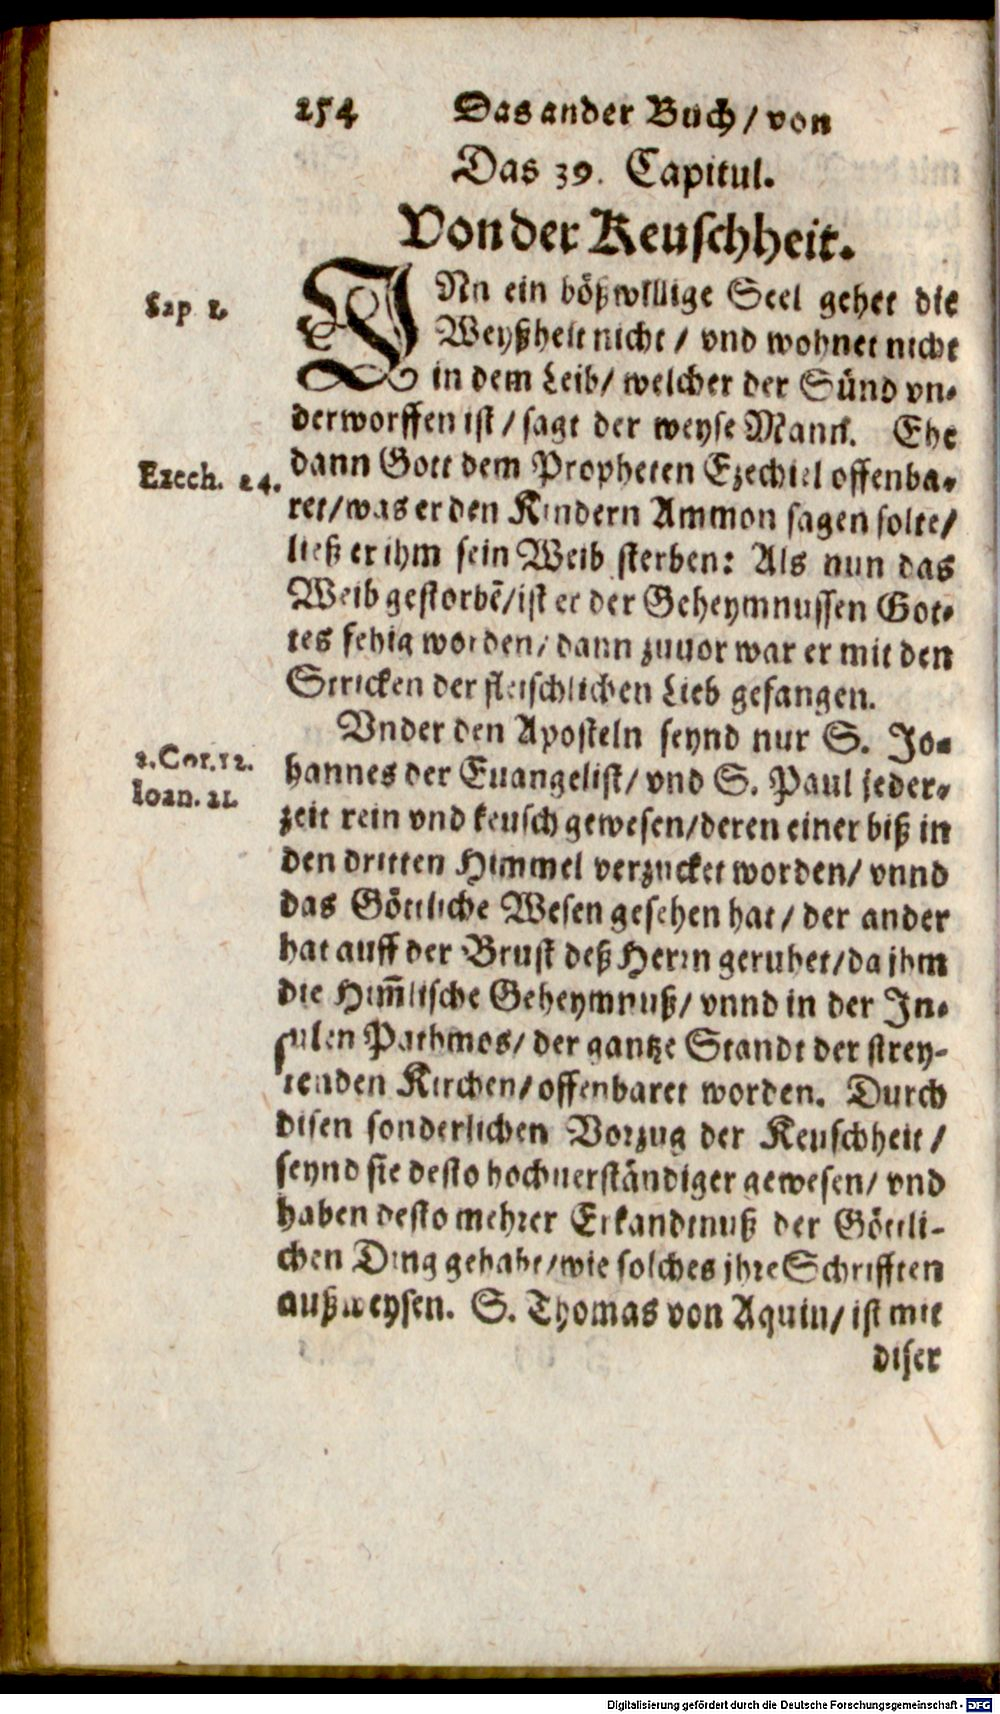 254 Das ander Buch / von
Das 39. Capitul.
Von der Keuschheit.
Sap 1.
INn ein bößwillige Seel gehet die
Weyßheit nicht / vnd wohnet nicht
in dem Leib / welcher der Sünd vn-
derworffen ist / sagt der weyse Mann. Ehe
Ezech. 24.
dann Gott dem Propheten Ezechiel offenba-
ret / was er den Kindern Ammon sagen solte /
ließ er ihm sein Weib sterben: Als nun das
Weib gestorbē / ist er der Geheymnussen Got-
tes fehig worden / dann zuuor war er mit den
Stricken der fleischlichen Lieb gefangen.
Vnder den Aposteln seynd nur S. Jo-
2. Cor. 12.
hannes der Euangelist / vnd S. Paul jeder-
Ioan. 21.
zeit rein vnd keusch gewesen / deren einer biß in
den dritten Himmel verzucket worden / vnnd
das Göttliche Wesen gesehen hat / der ander
hat auff der Brust deß Herrn geruhet / da jhm
die Him̄lische Geheymnuß / vnnd in der In-
sulen Pathmos / der gantze Standt der strey-
tenden Kirchen / offenbaret worden. Durch
disen sonderlichen Vorzug der Keuschheit /
seynd sie desto hochuerständiger gewesen / vnd
haben desto mehrer Erkandtnuß der Göttli-
chen Ding gehabt / wie solches jhre Schrifften
außweysen. S. Thomas von Aquin / ist mit
diser
Digitalisierung gefördert durch die Deutsche Forschungsgemeinschaft - DFG